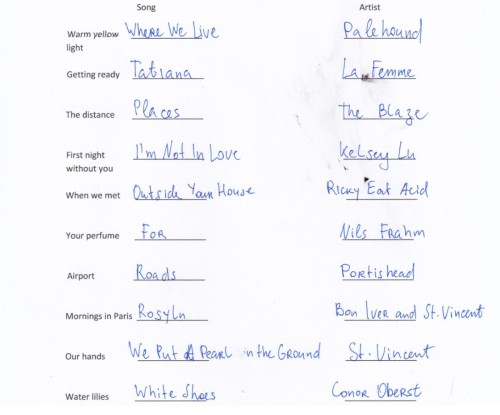 Song Artist
Warm yellow light Where We Live Palehound
Getting ready Tatiana La Femme
The distance Places The Blaze
First night without you I'm Not In Love Kelsey Lu
When we met Outside Your House Ricky Eat Acid
Your perfume For Nils Frahm
Airport Roads Portishead
Mornings in Paris Rosyln Bon Iver and St. Vincent
Our hands We Put A Pearl in the Ground St. Vincent
Water lilies White Shoes Conor Oberst